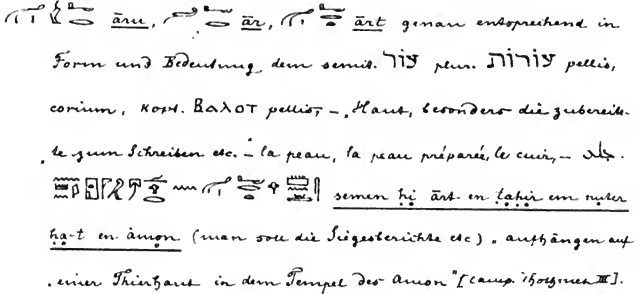 āru, ār, ārt genau entsprechend in
Form und Bedeutung dem semit. עור plur. עורות pellis,
corium, копт. ВаλоТ pellis, – „Haut, besonders die zubereite-
te zum Schreiben etc. – la peau, la peau préparée, le cuir, – جلد.
semen ḥi ārt en taḥir em nuter
ḥa-t en åmon (man soll die Siegesberichte etc) „aufhängen auf
„einer Thierhaut in dem Tempel des Amon" [Camp. Thothmes III].